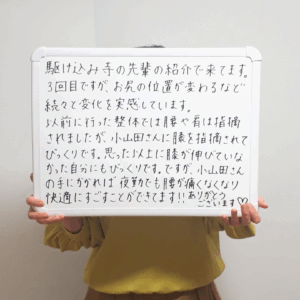 駆け込み寺の先輩の紹介で来てます。
3回目ですが、お尻の位置が変わるなど
続々と変化を実感しています。
以前に行った整体では腰や肩は指摘
されましたが、小山田さんに膝を指摘されて
びっくりです。思った以上に膝が伸びていな
かった自分にもびっくりです。ですが、小山田さん
の手にかかれば夜勤でも腰が痛くなくなり
快適にすごすことができてます!!ありがとう
ございます♡